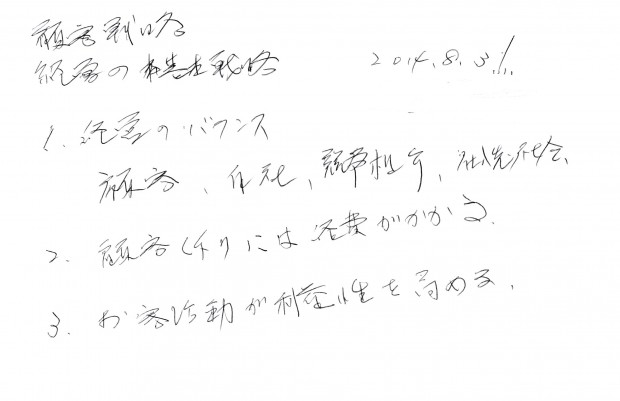 顧客戦略
経営の 戦略 2014.8.31.
1. 経営のバランス
顧客、自社、競争相手、
2. 顧客 には経費がかかる.
3. お客活動が利益性を高める.